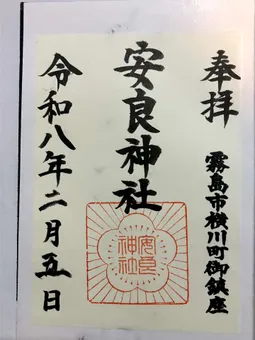 奉拝
霧島市横川町御鎮座
安良神社
安良
神社
令和八年二月五日